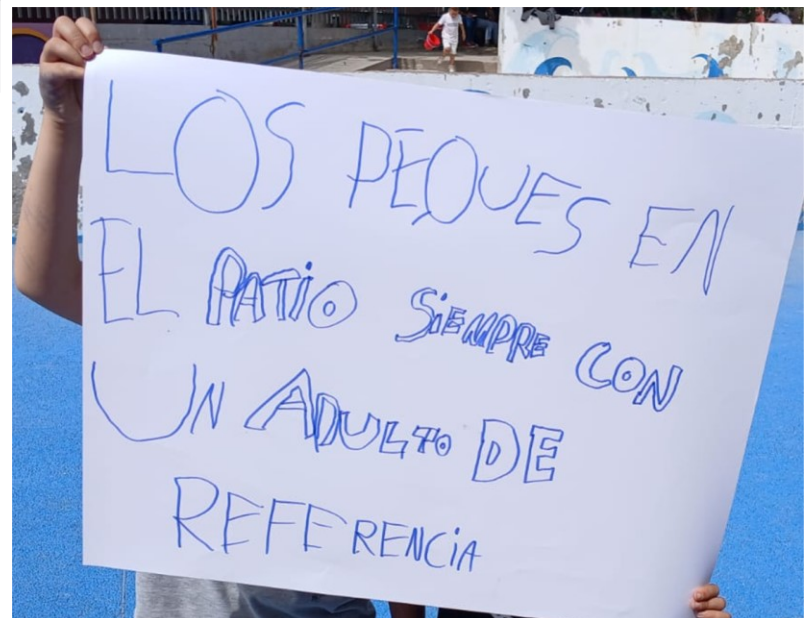 LOS PEQUES EN
EL PATIO SIEMPRE CON
UN ADULTO DE
REFERENCIA